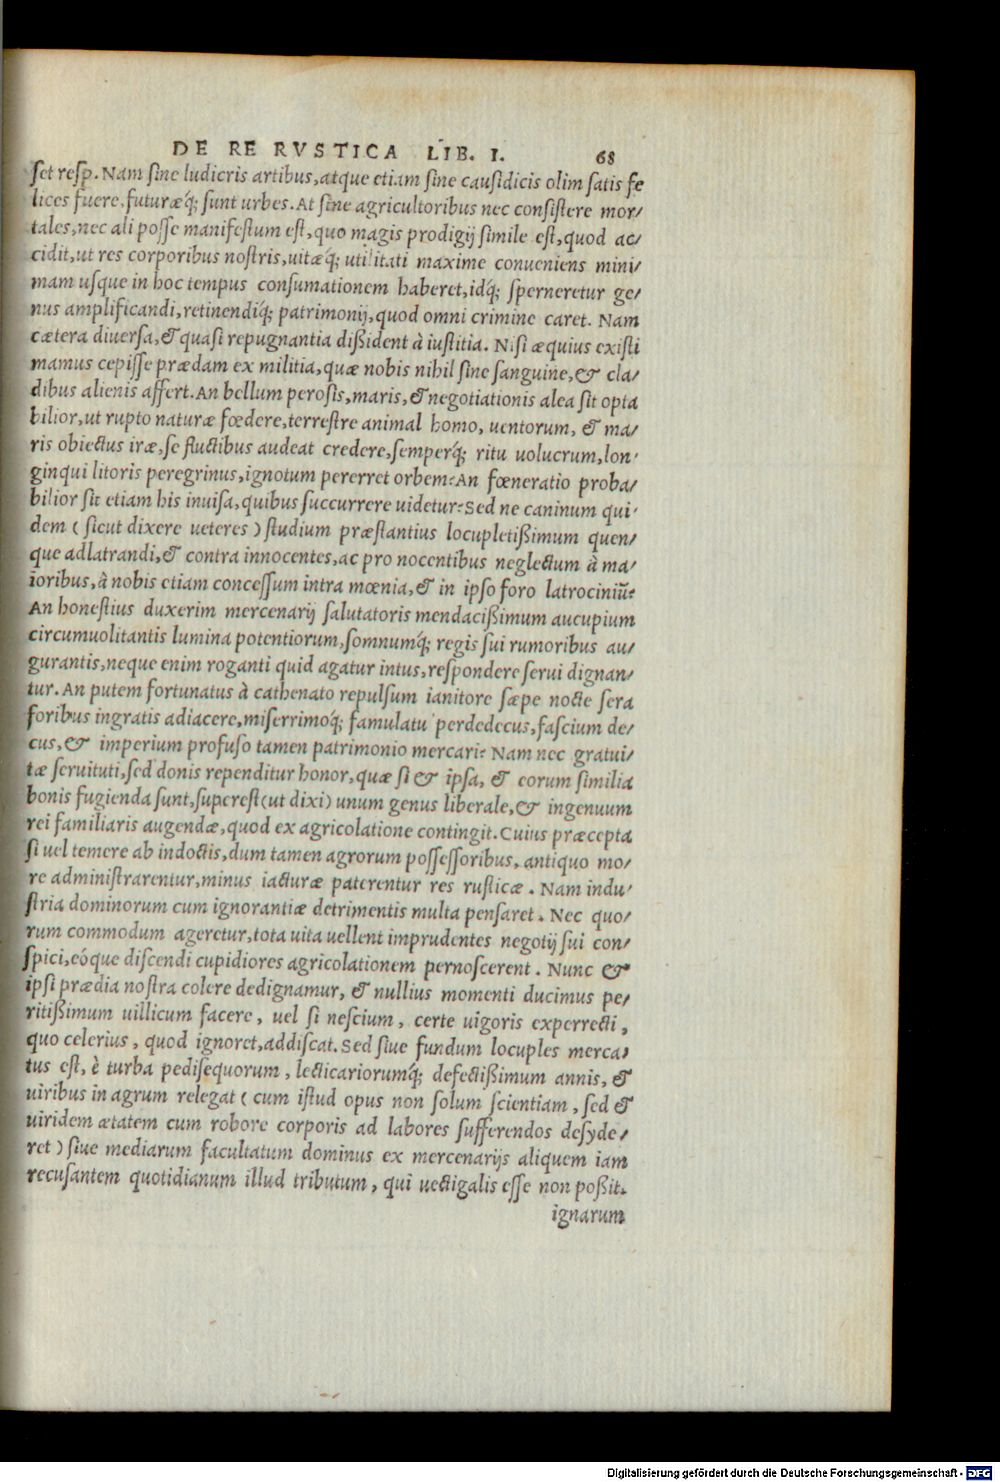 DE RE RVSTICA LIB. I. 68
ſet reſp. Nam ſine ludicris artibus, atque etiam ſine cauſidicis olim ſatis fe
lices fuere, futuræq́; ſunt urbes. At ſine agricultoribus nec conſiſtere mor/
tales, nec ali poſſe manifeſtum eſt, quo magis prodigij ſimile eſt, quod ac/
cidit, ut res corporibus noſtris, uitæq́; utilitati maxime conueniens mini/
mam uſque in hoc tempus conſumationem haberet, idq́; ſperneretur ge/
nus amplificandi, retinendiq́; patrimonij, quod omni crimine caret. Nam
cætera diuerſa, & quaſi repugnantia dißident à iuſtitia. Niſi æquius exiſti
mamus cepiſſe prædam ex militia, quæ nobis nihil ſine ſanguine, & cla/
dibus alienis affert. An bellum peroſis, maris, & negotiationis alea ſit opta
bilior, ut rupto naturæ fœdere, terreſtre animal homo, uentorum, & ma/
ris obiectus iræ, ſe fluctibus audeat credere, ſemperq́; ritu uolucrum, lon/
ginqui litoris peregrinus, ignotum pererret orbem? An fœneratio proba/
bilior ſit etiam his inuiſa, quibus ſuccurrere uidetur? Sed ne caninum qui/
dem ( ſicut dixere ueteres ) ſtudium præſtantius locupletißimum quen/
que adlatrandi, & contra innocentes, ac pro nocentibus neglectum à ma/
ioribus, à nobis etiam conceſſum intra mœnia, & in ipſo foro latrociniũ?
An honeſtius duxerim mercenarij ſalutatoris mendacißimum aucupium
circumuolitantis lumina potentiorum, ſomnumq́; regis ſui rumoribus au/
gurantis, neque enim roganti quid agatur intus, reſpondere ſerui dignan/
tur. An putem fortunatus à cathenato repulſum ianitore ſæpe nocte ſera
foribus ingratis adiacere, miſerrimoq́; famulatu perdedecus, faſcium de/
cus, & imperium profuſo tamen patrimonio mercari? Nam nec gratui/
tæ ſeruituti, ſed donis rependitur honor, quæ ſi & ipſa, & eorum ſimilia
bonis fugienda ſunt, ſupereſt (ut dixi) unum genus liberale, & ingenuum
rei familiaris augendæ, quod ex agricolatione contingit. Cuius præcepta
ſi uel temere ab indoctis, dum tamen agrorum poſſeſſoribus, antiquo mo/
re adminiſtrarentur, minus iacturæ paterentur res ruſticæ. Nam indu/
ſtria dominorum cum ignorantiæ detrimentis multa penſaret. Nec quo/
rum commodum ageretur, tota uita uellent imprudentes negotij ſui con/
ſpici, eóque diſcendi cupidiores agricolationem pernoſcerent. Nunc &
ipſi prædia noſtra colere dedignamur, & nullius momenti ducimus pe/
ritißimum uillicum facere, uel ſi neſcium, certe uigoris experrecti,
quo celerius, quod ignoret, addiſcat. Sed ſiue fundum locuples merca/
tus eſt, è turba pediſequorum, lecticariorumq́; defectißimum annis, &
uiribus in agrum relegat ( cum iſtud opus non ſolum ſcientiam, ſed &
uiridem ætatem cum robore corporis ad labores ſufferendos deſyde/
ret ) ſiue mediarum facultatum dominus ex mercenarijs aliquem iam
recuſantem quotidianum illud tributum, qui uectigalis eſſe non poßit.
ignarum
Digitalisierung gefördert durch die Deutsche Forschungsgemeinschaft - DFG